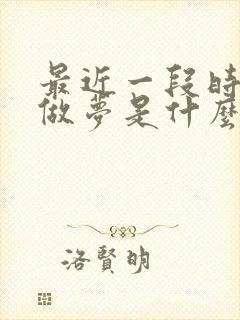 最近一段時
做夢是什麼
洛賢明